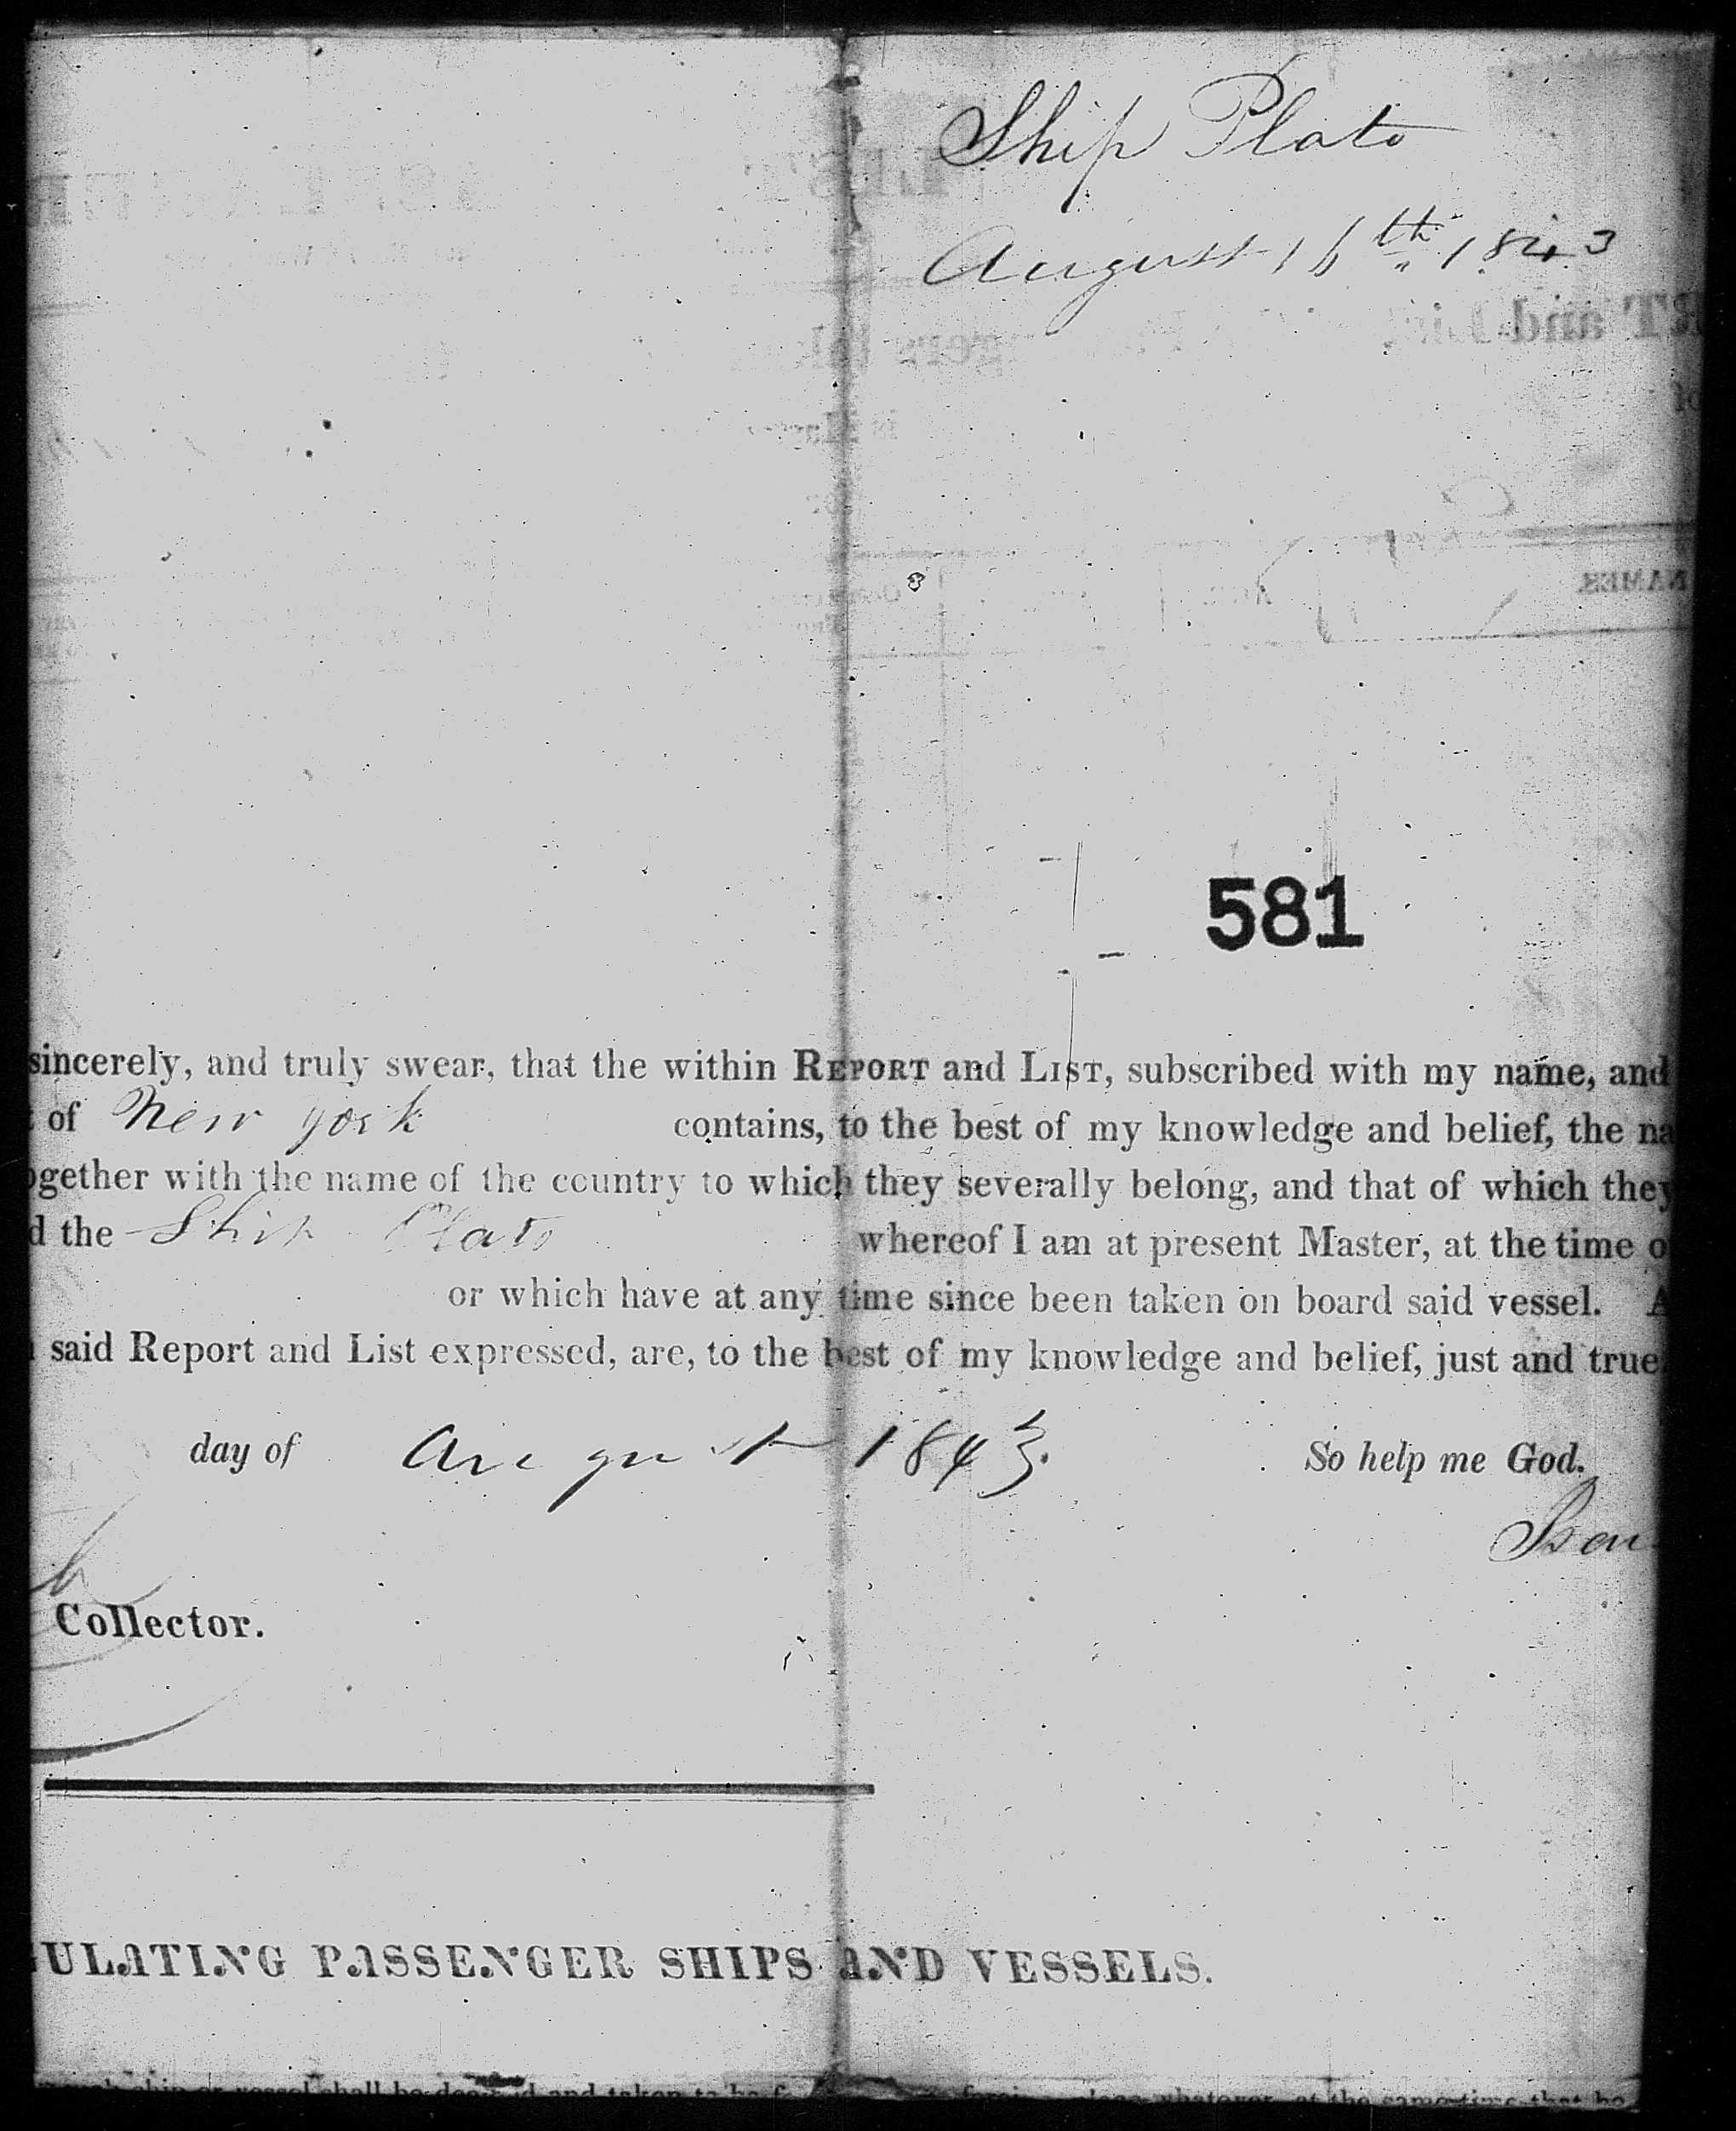 Ship Plato
August 16th 1843
581
sincerely, and truly swear, that the within REPORT and LIST, subscribed with my name, and
of New York contains, to the best of my knowledge and belief, the na
ogether with the name of the country to which they severally belong, and that of which they
d the Ship Plato whereof I am at present Master, at the time o
or which have at any time since been taken on board said vessel. A
said Report and List expressed, are, to the best of my knowledge and belief, just and true
day of August 1843. So help me God.
Collector.
GULATING PASSENGER SHIPS AND VESSELS.